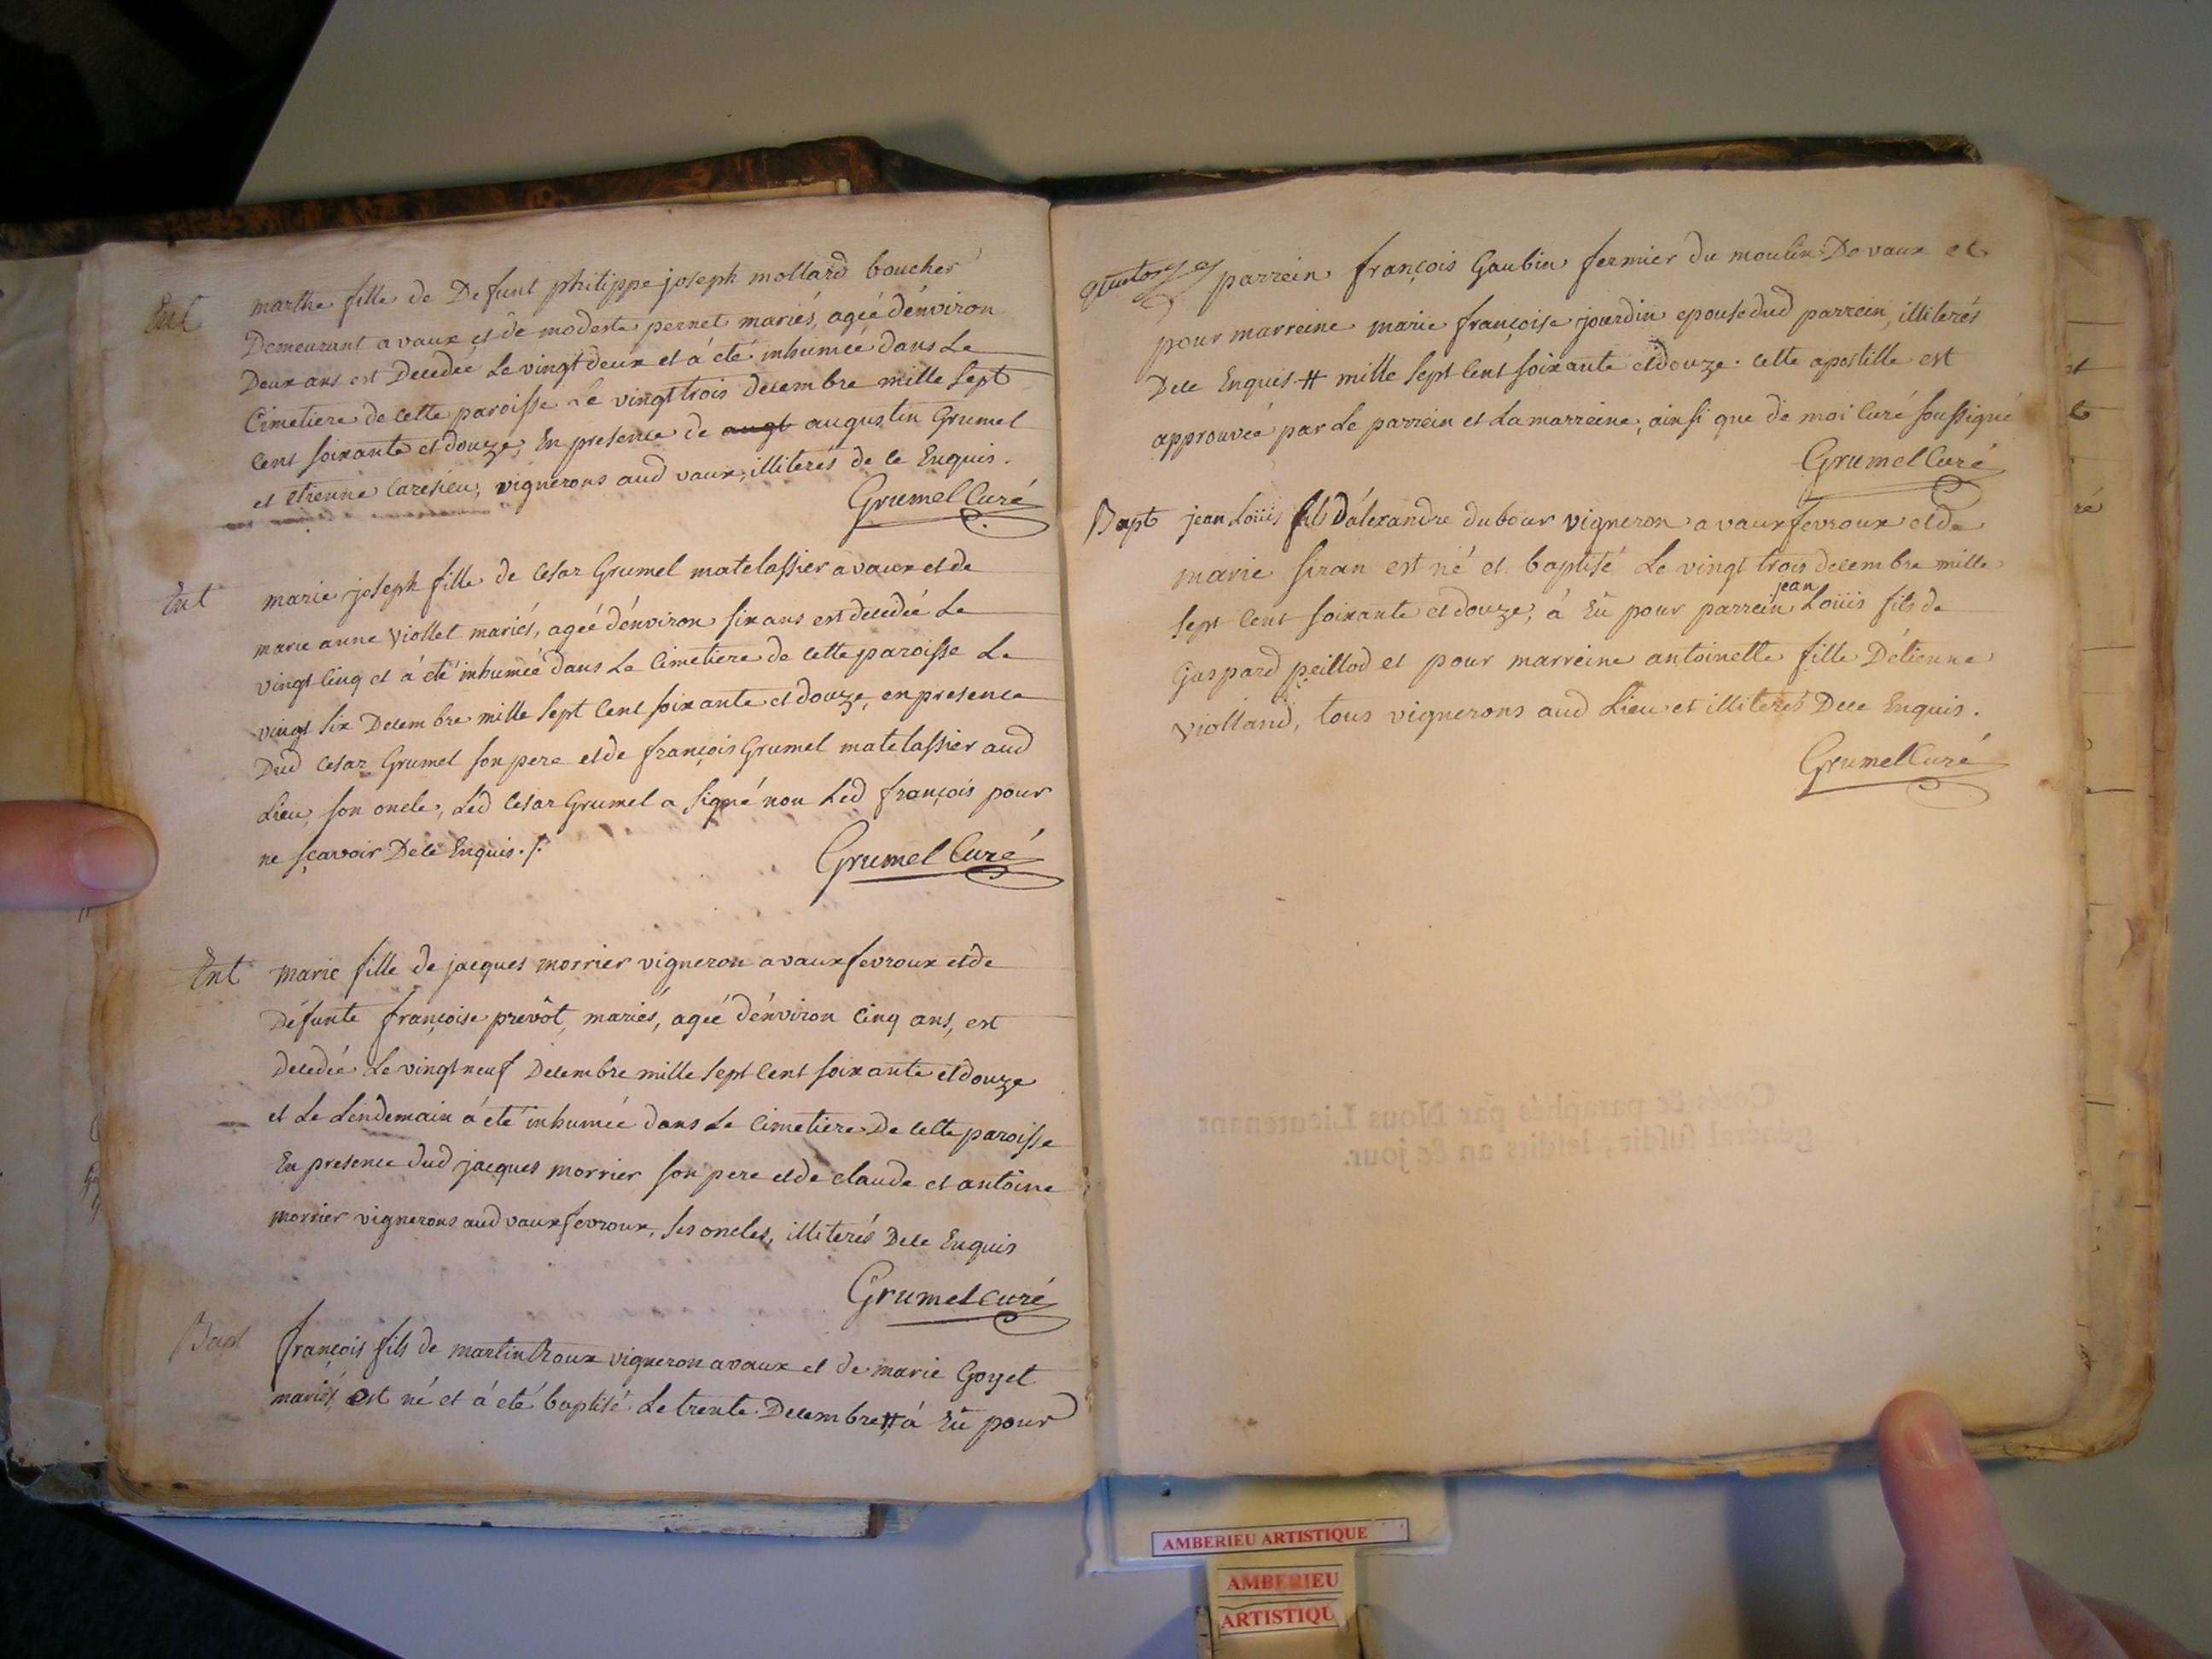 Ent marthe fille de Defunt philippe joseph mollard boucher
Demeurant a vaux et de modeste pernet mariés, agée d'énviron
Deux ans est Decedée Le vingt deux et à été inhumée dans Le
Cimetiere de cette paroisse Le vingt trois decembre mille sept
cent soixante et douze, En presence de augt augustin Grumel
et etienne vignerons aud vaux, illiterés de ce Enquis.
Grumel Curé
Ent marie joseph fille de Cesar Grumel matelassier a vaux et de
marie anne Viollet mariés, agée d'énviron six ans est decedée Le
vingt cinq et à été inhumée dans Le Cimetiere de cette paroisse Le
vingt six Decembre mille sept cent soixante et douze, en presence
Dud Cesar Grumel son pere et de françois Grumel matelassier aud
Lieu, son oncle, Led Cesar Grumel a signé non Led françois pour
ne sçavoir De ce Enquis ./.
Grumel Curé
Ent marie fille de jacques morrier vigneron a vauxfevroux et de
Défunte françoise prevôt, mariés, agée d'énviron Cinq ans, est
decedée Le vingt neuf Decembre mille sept cent soixante et douze
et Le Lendemain à été inhumée dans Le Cimetiere De cette paroisse
En presence dud jacques morrier son pere et de claude et antoine
morrier vignerons aud vauxfevroux, ses oncles, illiterés De ce Enquis
Grumel curé
Bapt françois fils de martin Roux vigneron a vaux et de marie Goyet
mariés, est né et à été baptisé Le trente Decembre # à Eü pour
parrein françois Gaubin fermier du moulin De vaux et
pour marreine marie françoise jourdin epouse dud parrein, illiterés
De ce Enquis # mille sept cent soixante et douze. cette apostille est
approuvée par Le parrein et La marreine, ainsi que de moi Curé soussigné
Grumel Curé
Bapt jean Loüis fils D'aléxandre dubour vigneron a vauxfevroux et de
marie siran est né et baptisé Le vingt trois decembre mille
sept cent soixante et douze, à Eü pour parrein jean Loüis fils de
Gaspard peillod et pour marreine antoinette fille D'étienne
Violland, tous vignerons aud Lieu et illiterés De ce Enquis.
Grumel Curé
Cotés & paraphés par Nous Lieutenant
général susdit, lesdits an & jour.
AMBERIEU ARTISTIQUE
AMBERIEU
ARTISTIQU